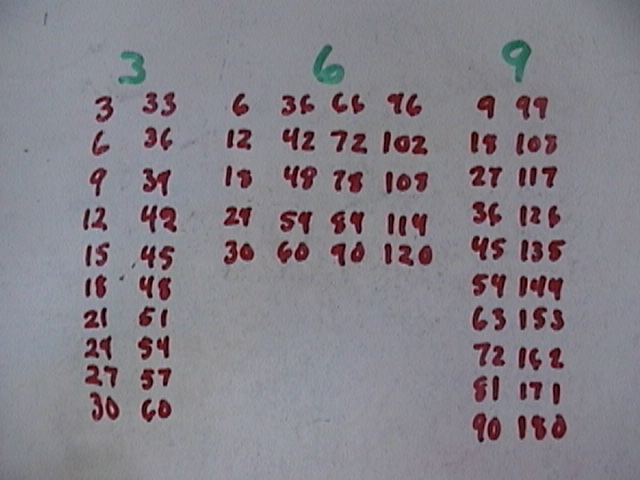 3 6 9
3 33 6 36 66 96 9 99
6 36 12 42 72 102 18 108
9 39 18 48 78 108 27 117
12 42 24 54 84 114 36 126
15 45 30 60 90 120 45 135
18 48 54 144
21 51 63 153
24 54 72 162
27 57 81 171
30 60 90 180